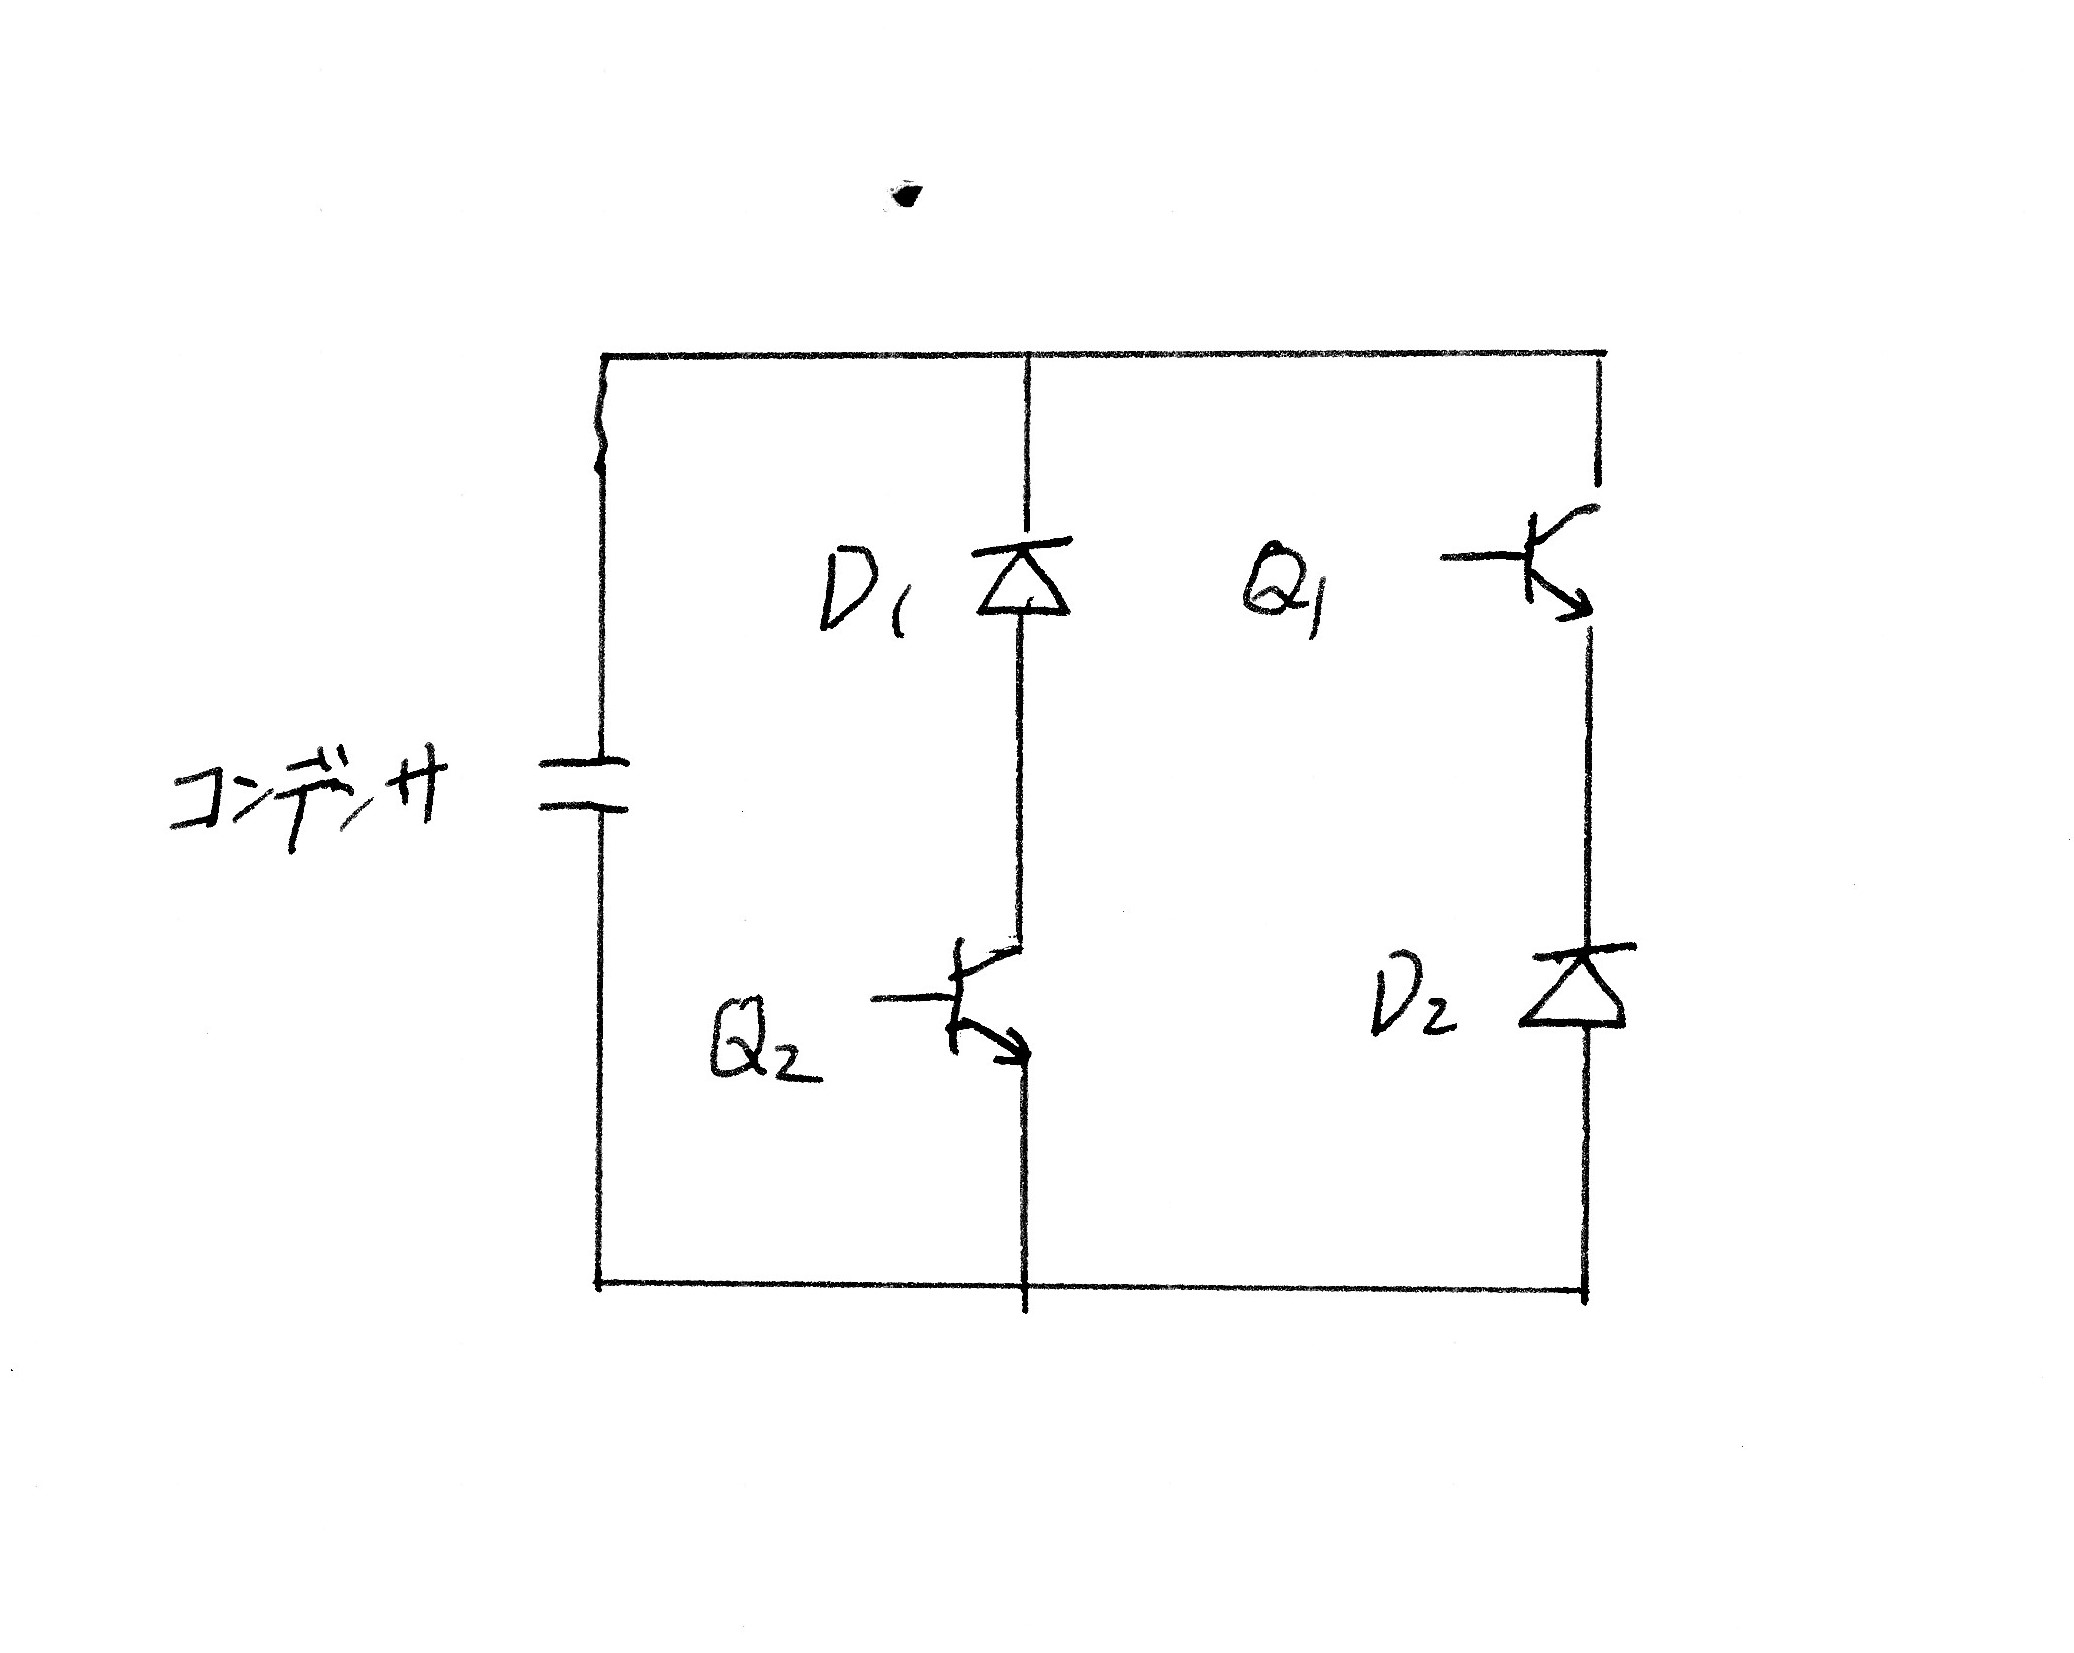 D1
Q1
コンデンサ
Q2
D2